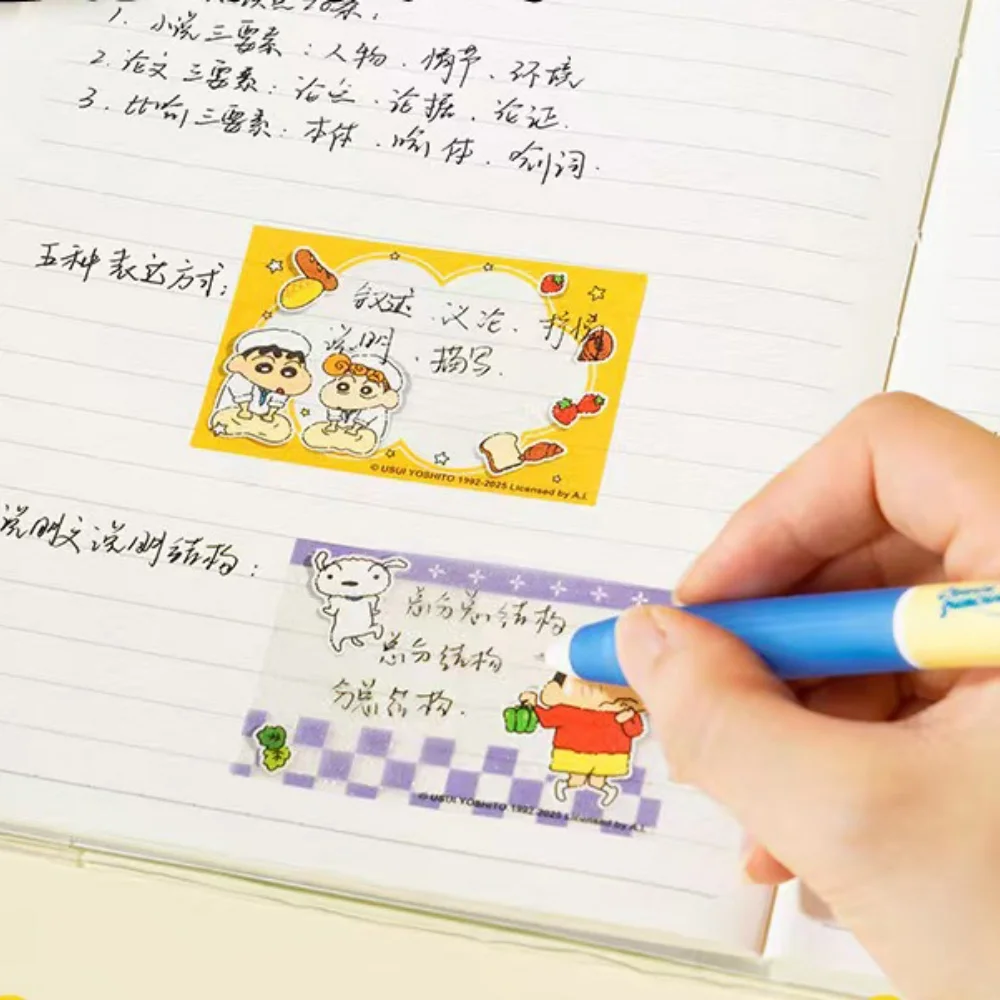 1. 小说三要素：人物、情节、环境
2. 论文三要素：论点、论据、论证.
3. 比喻三要素：本体、喻体、喻词.
五种表达方式：
叙述、议论、抒情
说明、描写.
© USUI YOSHITO 1992-2025 Licensed by A.I.
说明文说明结构：
总分总结构
总分结构
分总结构.
© USUI YOSHITO 1992-2025 Licensed by A.I.